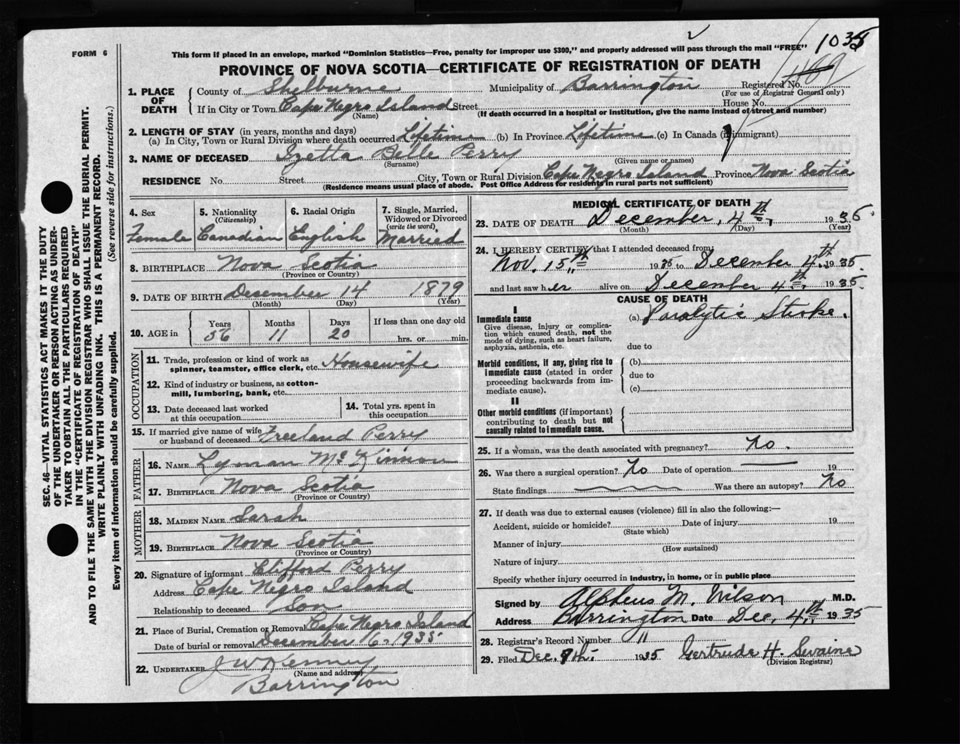 FORM 6
This form if placed in an envelope, marked "Dominion Statistics—Free, penalty for improper use $300," and properly addressed will pass through the mail "FREE"
2
PROVINCE OF NOVA SCOTIA—CERTIFICATE OF REGISTRATION OF DEATH
1. PLACE OF DEATH
County of Shelburne Municipality of Barrington Registered No.
(For use of Registrar General only)
If in City or Town Cape Negro Island Street House No.
(Name) (If death occurred in a hospital or institution, give the name instead of street and number)
2. LENGTH OF STAY (in years, months and days)
(a) In City, Town or Rural Division where death occurred Lifetime (b) In Province Lifetime (c) In Canada (if immigrant)
3. NAME OF DECEASED Izetta Belle Perry
(Surname) (Given name or names)
RESIDENCE No. Street City, Town or Rural Division Cape Negro Island Province Nova Scotia
(Residence means usual place of abode. Post Office Address for residents in rural parts not sufficient)
4. Sex
Female
5. Nationality
(Citizenship)
Canadian
6. Racial Origin
English
7. Single, Married, Widowed or Divorced
(write the word)
Married
8. BIRTHPLACE Nova Scotia
(Province or Country)
9. DATE OF BIRTH December 14 1879
(Month) (Day) (Year)
10. AGE in
Years Months Days If less than one day old
56 11 20 hrs. or min.
OCCUPATION
11. Trade, profession or kind of work as spinner, teamster, office clerk, etc. Housewife
12. Kind of industry or business, as cotton-mill, lumbering, bank, etc.
13. Date deceased last worked at this occupation
14. Total yrs. spent in this occupation
15. If married give name of wife or husband of deceased Freeland Perry
FATHER
16. NAME Lyman McKinnon
17. BIRTHPLACE Nova Scotia
(Province or Country)
MOTHER
18. MAIDEN NAME Sarah
19. BIRTHPLACE Nova Scotia
(Province or Country)
20. Signature of informant Clifford Perry
Address Cape Negro Island
Relationship to deceased Son
21. Place of Burial, Cremation or Removal Cape Negro Island
Date of burial or removal December 6, 1935
22. UNDERTAKER J W Kenney
(Name and address)
Barrington
MEDICAL CERTIFICATE OF DEATH
23. DATE OF DEATH December, 4th, 1935.
(Month) (Day) (Year)
24. I HEREBY CERTIFY that I attended deceased from
Nov. 15th 1935 to December 4th 1935
and last saw her alive on December 4th 1935.
CAUSE OF DEATH
I
Immediate cause (a) Paralytic Stroke.
Give disease, injury or complication which caused death, not the mode of dying, such as heart failure, asphyxia, asthenia, etc.
due to
Morbid conditions, if any, giving rise to immediate cause (stated in order proceeding backwards from immediate cause).
(b)
due to
(c)
II
Other morbid conditions (if important) contributing to death but not causally related to immediate cause.
25. If a woman, was the death associated with pregnancy? No.
26. Was there a surgical operation? No Date of operation 19
State findings Was there an autopsy? No
27. If death was due to external causes (violence) fill in also the following:—
Accident, suicide or homicide? Date of injury 19
(State which)
Manner of injury
(How sustained)
Nature of injury
Specify whether injury occurred in industry, in home, or in public place
Signed by Alpheus M. Wilson M.D.
Address Barrington Date Dec, 4th 1935
28. Registrar's Record Number 11
29. Filed Dec. 9th 1935 Gertrude H. Swaine
(Division Registrar)
SEC. 46—VITAL STATISTICS ACT MAKES IT THE DUTY
OF THE UNDERTAKER OR PERSON ACTING AS UNDER-
TAKER TO OBTAIN ALL THE PARTICULARS REQUIRED
IN THE "CERTIFICATE OF REGISTRATION OF DEATH"
AND TO FILE THE SAME WITH THE DIVISION REGISTRAR WHO SHALL ISSUE THE BURIAL PERMIT.
WRITE PLAINLY WITH UNFADING INK. THIS IS A PERMANENT RECORD.
Every item of information should be carefully supplied. (See reverse side for instructions.)